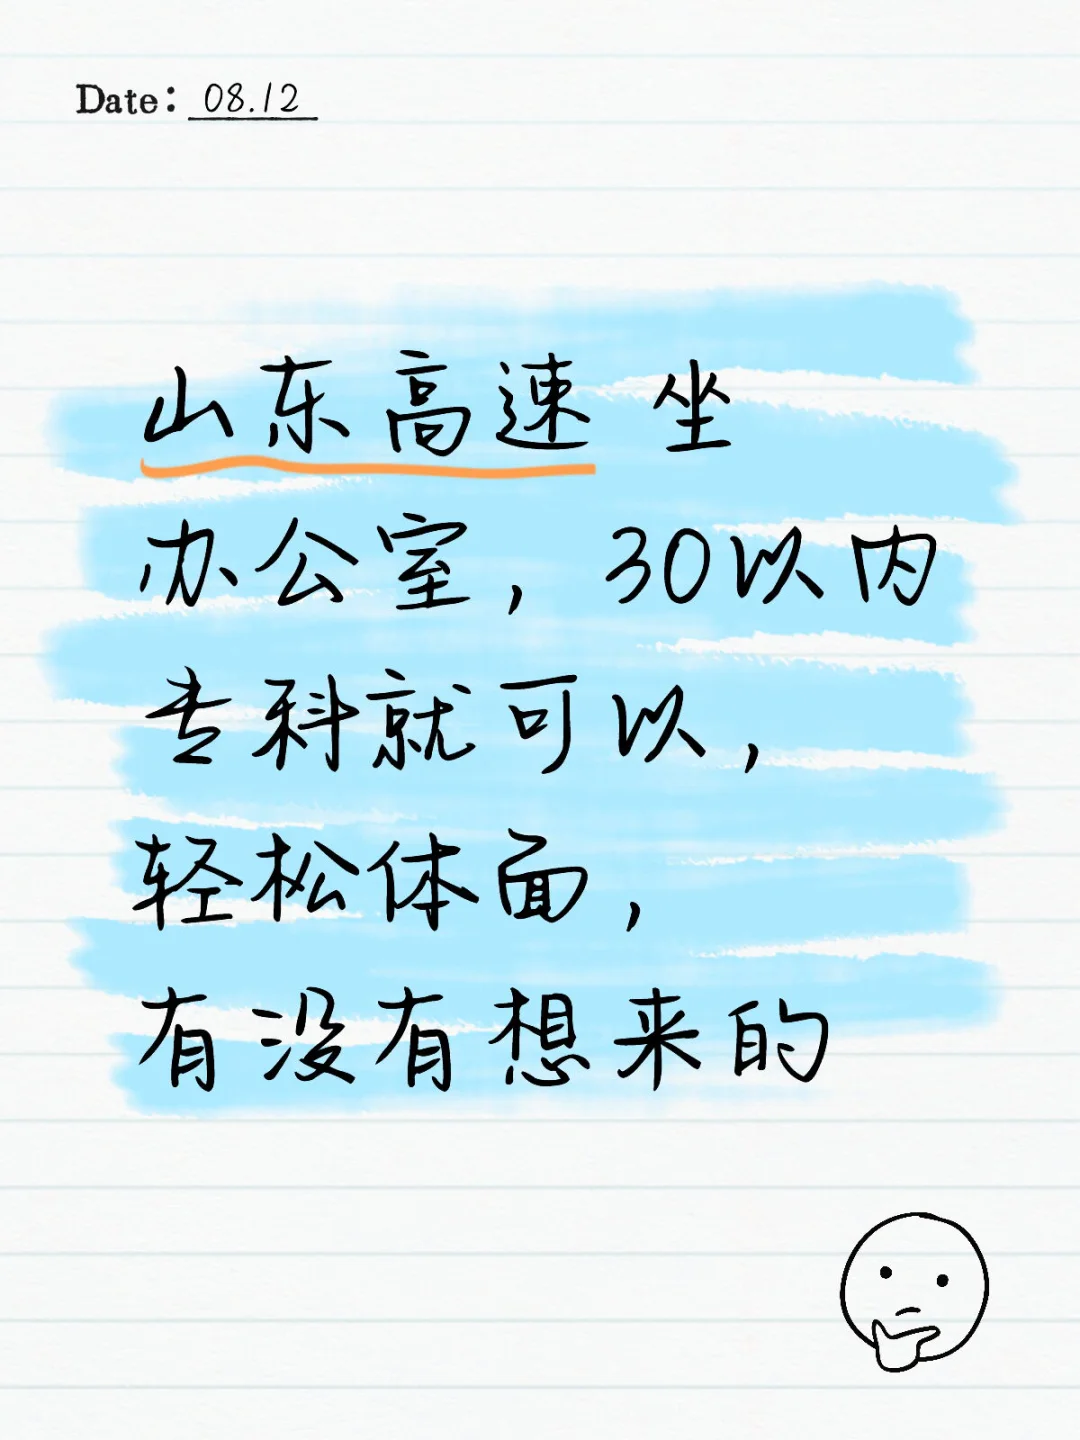 Date: 08.12
山东高速 坐
办公室，30以内
专科就可以，
轻松体面，
有没有想来的